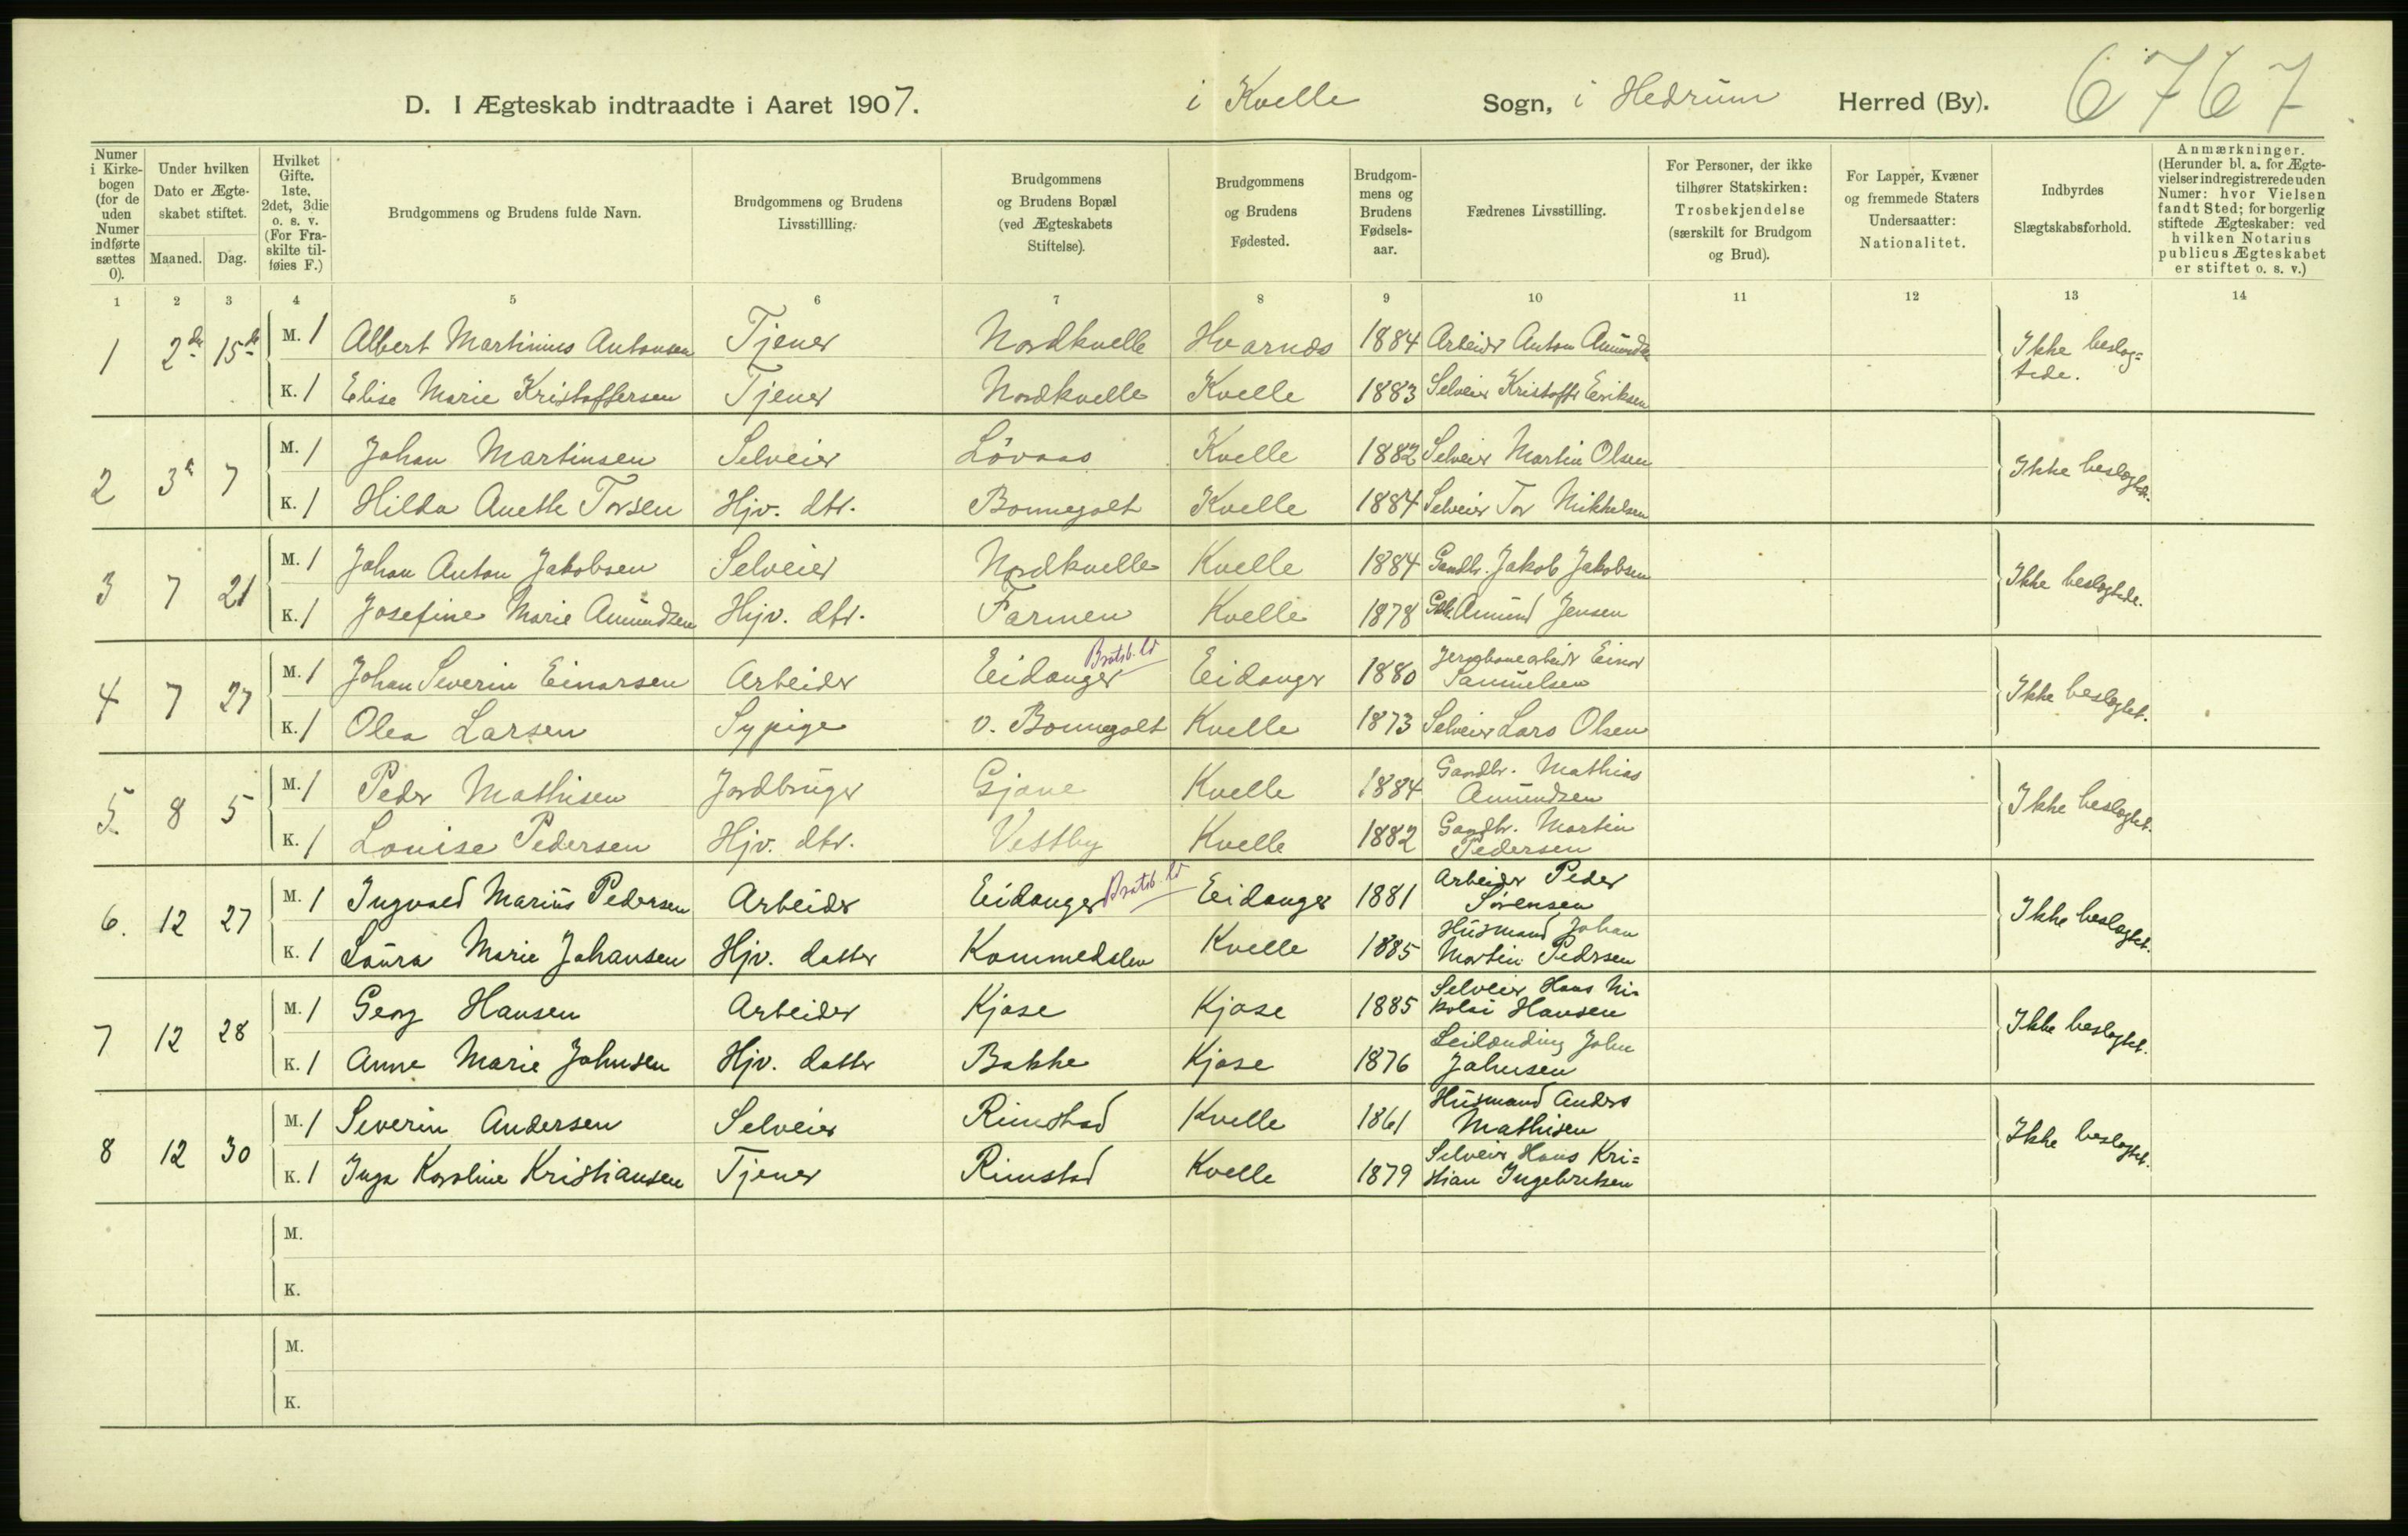 D. I Ægteskab indtraadte i Aaret 1907. i Kvelle Sogn, i Hedrum Herred (By). 6767
Numer i Kirkebogen (for de uden Numer indførte sættes 0).
Under hvilken Dato er Ægteskabet stiftet.
Maaned. Dag.
Hvilket Gifte. 1ste, 2det, 3die o. s. v. (For Fraskilte tilføies F.)
Brudgommens og Brudens fulde Navn.
Brudgommens og Brudens Livsstillling.
Brudgommens og Brudens Bopæl (ved Ægteskabets Stiftelse).
Brudgommens og Brudens Fødested.
Brudgommens og Brudens Fødselsaar.
Fædrenes Livsstilling.
For Personer, der ikke tilhører Statskirken: Trosbekjendelse (særskilt for Brudgom og Brud).
For Lapper, Kvæner og fremmede Staters Undersaatter: Nationalitet.
Indbyrdes Slægtskabsforhold.
Anmærkninger. (Herunder bl. a. for Ægtevielser indregistrerede uden Numer: hvor Vielsen fandt Sted; for borgerlig stiftede Ægteskaber: ved hvilken Notarius publicus Ægteskabet er stiftet o. s. v.)
1 2 3 4 5 6 7 8 9 10 11 12 13 14
1 2den 15de M. 1 Albert Martinius Antonsen Tjener Nordkvelle Hvarnæs 1884 Arbeider Anton Amundsen Ikke beslog=
tede.
K. 1 Elise Marie Kristoffersen Tjener Nordkvelle Kvelle 1883 Selveier Kristoffer Eriksen
2 3 7 M. 1 Johan Martinsen Selveier Lövaas Kvelle 1882 Selveier Martin Olsen Ikke beslogtet.
K. 1 Hilda Anette Torsen Hjv. dtr. Bonnegolt Kvelle 1884 Selveier Tor Mikkelsen
3 7 21 M. 1 Johan Anton Jakobsen Selveier Nordkvelle Kvelle 1884 Gaardbr. Jakob Jakobsen Ikke beslogtede.
K. 1 Josefine Marie Amundsen Hjv. dtr. Farmen Kvelle 1878 Gbr. Amund Jensen
4 7 27 M. 1 Johan Severin Einarsen Arbeider Eidanger Bratsb. Eidanger 1880 Jernbanearbeider Einar
Samuelsen Ikke beslogtet.
K. 1 Olea Larsen Sypige v. Bonnegolt Kvelle 1873 Selveier Lars Olsen
5. 8 5 M. 1 Peder Mathisen Jordbruger Gjone Kvelle 1884 Gaardbr. Mathias
Amundsen Ikke beslogtet.
K. 1 Louise Pedersen Hjv. dtr. Vestby Kvelle 1882 Gaardbr. Martin
Pedersen
6. 12 27 M. 1 Ingvald Marius Pedersen Arbeider Eidanger Bratsb. Eidanger 1881 Arbeider Peder
Sörensen Ikke beslogtet.
K. 1 Laura Marie Johansen Hjv. datter Kommedalen Kvelle 1885 Husmand Johan
Martin Pedersen
7 12 28 M. 1 Georg Hansen Arbeider Kjose Kjose 1885 Selveier Hans Ni-
kolai Hansen Ikke beslogtet.
K. 1 Anne Marie Johnsen Hjv. datter Bakke Kjose 1876 Leilænding John
Johnsen
8 12 30 M. 1 Severin Andersen Selveier Rimstad Kvelle 1861 Husmand Anders
Mathisen Ikke beslogtet.
K. 1 Inga Karoline Kristiansen Tjener Rimstad Kvelle 1879 Selveier Hans Kri=
stian Ingebretsen
M.
K.
M.
K.